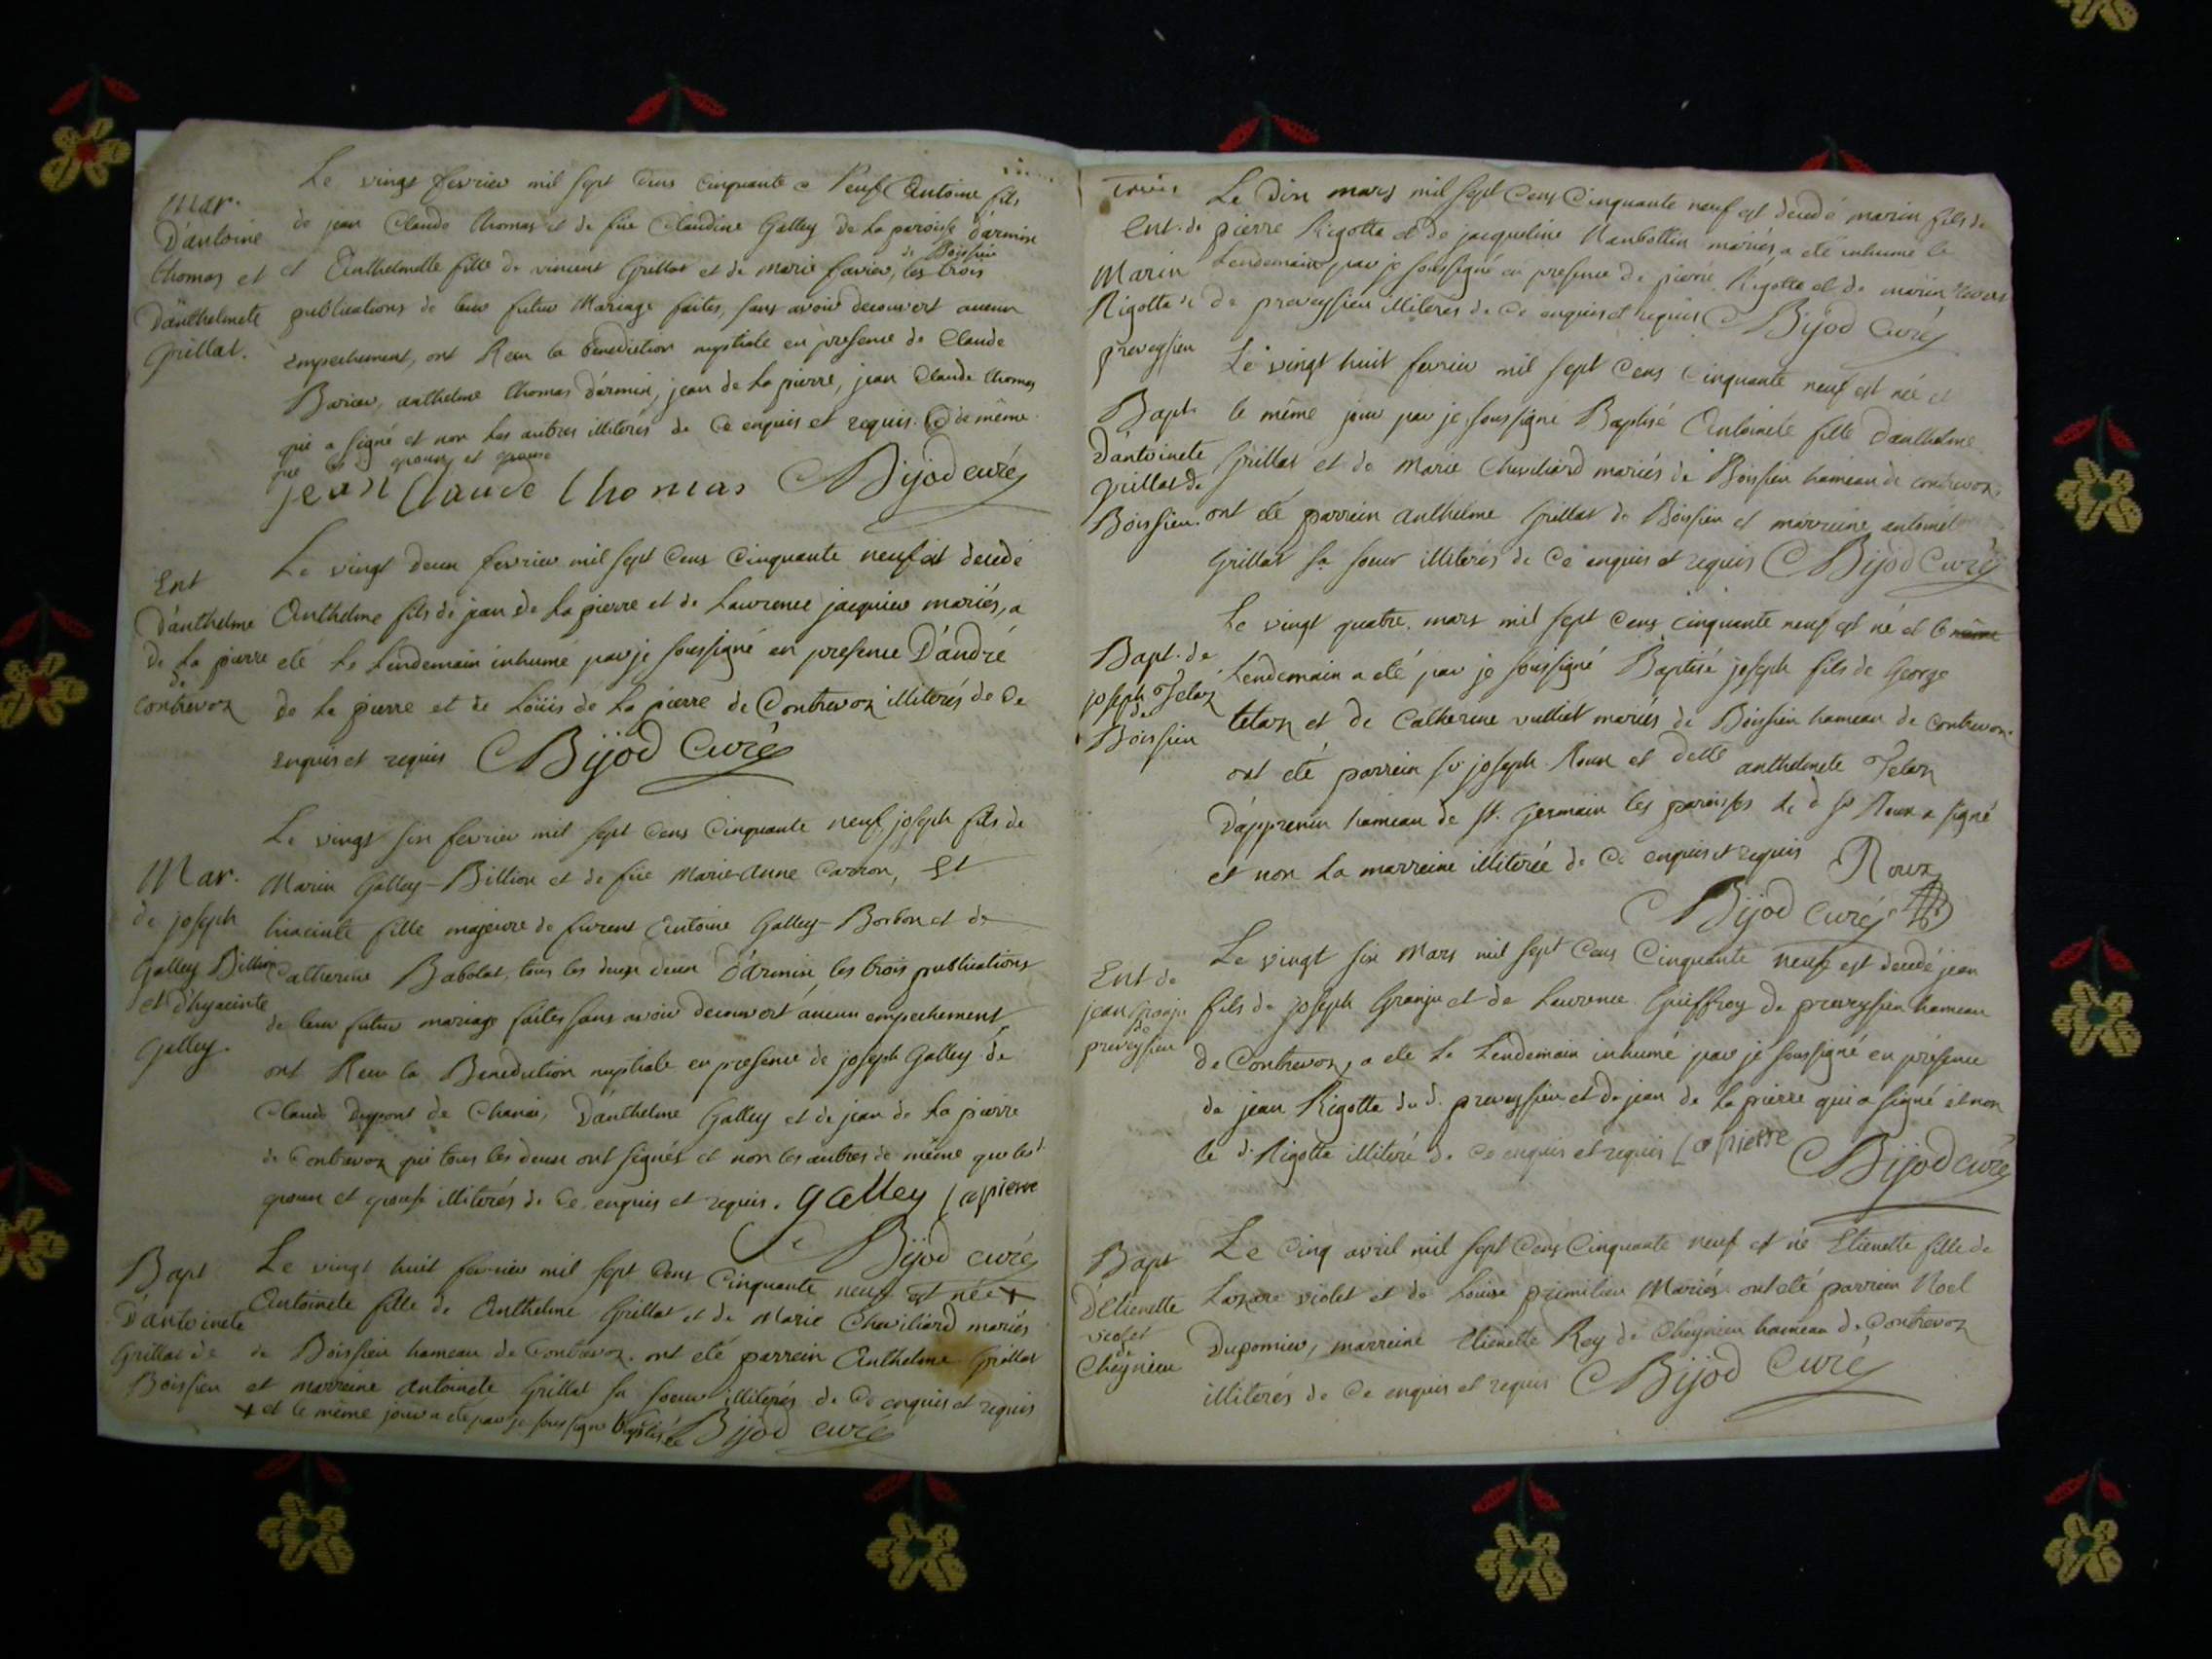 Le vingt fevrier mil sept cens cinquante e neuf Antoine fils
Mar.
D'antoine
thomas et
D'anthelmete
Grillat.
de jean Claude thomas et de füe Claudine Galley de la paroisse d'armin
et Anthelmette fille de vincent Grillat et de marie favier, de Boissieu les trois
publications de leur futur Mariage faites, sans avoir decouvert aucun
empechement, ont Recu la benediction nuptiale en presence de Claude
anthelme thomas d'armin, jean de la pierre, jean Claude thomas
qui a signé et non les autres illiterés de ce enquis et requis. de même
que les d. epoux et epouse
jean Claude thomas Bijod curé
Ent
D'anthelme
De la pierre
de
contrevoz
Le vingt deux fevrier mil sept cens cinquante neuf est decedé
Anthelme fils de jean de la pierre et de Laurence jacquier mariés, a
eté le Lendemain inhumé par je soussigné en presence D'andré
de la pierre et de Loüis de la pierre de Contrevoz illiterés de ce
enquis et requis Bijod Curé
Mar.
de joseph
Galley Billion
et d'hyacinte
Galley.
Le vingt six fevrier mil sept cens cinquante neuf joseph fils de
Marin Galley-Billion et de füe Marie-Anne Carron, Et
hiacinte fille majeure de furent Antoine Galley-Borbon et de
Catherine Babolat, tous les deux deux D'armin, les trois publications
de leur futur mariage faites sans avoir decouvert aucun empechement
ont Recu la Benediction nuptiale en presence de joseph Galley de
Claude Dupont de Chanai, D'anthelme Galley et de jean de la pierre
de Contrevoz qui tous les deux ont signés et non les autres de même que les d.
epoux et epouse illiterés de ce enquis et requis. galley lapierre
Bijod curé
Bapt
D'antoinete
Grillat de
Boissieu
Le vingt huit fevrier mil sept cens cinquante neuf est née +
Antoinete fille de Anthelme Grillat et de Marie Cheviliard mariés
de Boissieu hameau de Contrevoz. ont eté parrein Anthelme Grillat
et marreine Antoinete Grillat sa soeur illiterés de ce enquis et requis
+ et le même jour a eté par je soussigné baptisée Bijod curé
trois
Ent. de
Marin
Rigotta de
preveyssieu
Le Dix mars mil sept Cens Cinquante neuf est decedé marin fils de
pierre Rigotta et de jacqueline mariés, a eté inhumé le
Lendemain par je soussigné en presence de pierre Rigotta et de marin
de preveyssieu illiterés de Ce enquis et requis Bijod Curé
Bapt.
D'antoinete
grillat de
Boissieu.
Le vingt huit fevrier mil sept cens cinquante neuf est née et
le même jour par je soussigné Baptisé Antoinete fille D'anthelme
Grillat et de Marie Cheviliard mariés de Boissieu hameau de contrevoz.
ont eté parrein anthelme Grillat de Boissieu et marreine antoinete
Grillat sa soeur illiterés de Ce enquis et requis Bijod Curé
Bapt. de
joseph Tetaz
de
Boissieu
Le vingt quatre mars mil sept cens cinquante neuf est né et le même
Lendemain a eté par je soussigné Baptisé joseph fils de George
tetaz et de Catherine vulliet mariés de Boissieu hameau de contrevoz.
ont eté parrein sr joseph Roux et delle anthelmete Tetaz
D'appregnin hameau de st. Germain les paroisses le d sr Roux a signé
et non la marreine illiterée de Ce enquis et requis Roux
Bijod Curé
Ent de
jean Granju
de
preveyssieu
Le vingt six Mars mil sept Cens Cinquante neuf est decedé jean
fils de joseph Granju et de Laurence Guiffrey de preveyssieu hameau
de Contrevoz, a eté le Lendemain inhumé par je soussigné en présence
de jean Rigotta du d. preveyssieu et de jean de la pierre qui a signé et non
le d. Rigotta illiteré de ce enquis et requis lapierre Bijod curé
Bapt
D'Etienette
violet
de
Cheynieu
Le Cinq avril mil sept Cens Cinquante neuf est né Etienette fille de
Lazare violet et de Louise primilieu Mariés. ont eté parrein Noel
Dupomier, marreine Etienette Rey de Cheynieu hameau de Contrevoz
illiterés de Ce enquis et requis Bijod Curé